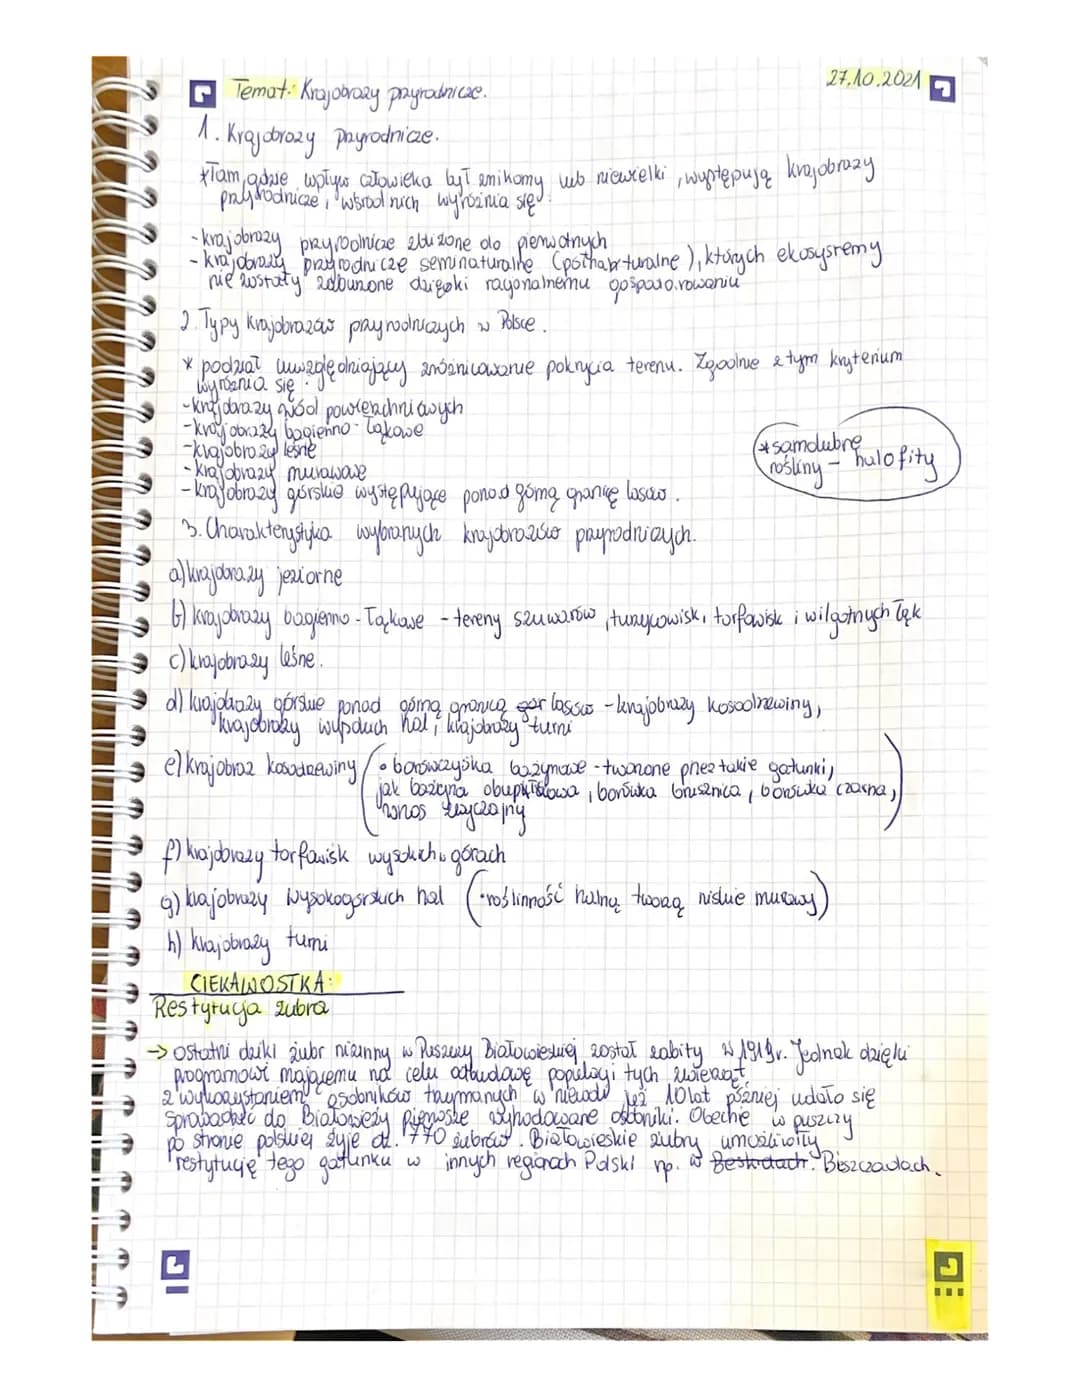 27.10.2021
Temat: Krajobrazy przyrodnicze.
1. Krajobrazy przyrodnicze.
*Tam, gdzie wpływ człowieka był znikomy lub niewielki, występują krajobrazy
przyrodnicze, wśród nich wyróżnia się:
-krajobrazy przyrodnicze zbliżone do pierwotnych
-krajobrazy przyrodnicze seminaturalne ( ), których ekosysremy
nie zostały zaburzone dzięki racjonalnemu gospodarowaniu
2. Typy krajobrazów przyrodniczych w Polsce.
* podział uwzględniający zróżnicowanie pokrycia terenu. Zgodnie z tym kryterium
wyróżnia się:
-krajobrazy wód powierzchniowych
-krajobrazy bagienno-łąkowe
-krajobrazy leśne
-krajobrazy murawowe
-krajobrazy górskie występujące ponad górną granicę lasów.
*samolubrę
rośliny - halofity
3. Charakterystyka wybranych krajobrazów przyrodniczych.
a) krajobrazy jeziorne
b) krajobrazy bagienno-łąkowe - tereny szuwarów, turzycowisk, torfowisk i wilgotnych łąk
c) krajobrazy leśne.
d) krajobrazy górskie ponad górną granicą gór lasów - krajobrazy kosodrzewiny,
krajobrazy hal, krajobrazy turni
e) krajobraz kosodrzewiny (• borówczyska bażynowe - tworzone przez takie gatunki,
jak bażyna obupłciowa, borówka brusznica, borówka czarna,
wrzos zwyczajny)
f) krajobrazy torfowisk wysokich w górach
g) krajobrazy wysokogórskich hal (•roślinność halną tworzą niskie murawy)
h) krajobrazy turni
CIEKAWOSTKA:
Restytucja żubra
→ ostatni dziki żubr nizinny w Puszczy Białowieskiej został zabity w 1919r. Jednak dzięki
programowi mającemu na celu odbudowę populacji tych zwierząt,
z wykorzystaniem osobników trzymanych w niewoli, już 10 lat później udało się
sprowadzić do Białowieży pierwsze wyhodowane osobniki. Obecnie w puszczy
po stronie polskiej żyje ok. 770 żubrów. Białowieskie żubry umożliwiły
restytucję tego gatunku w innych regionach Polski np. w Beskidach. Bieszczadach.